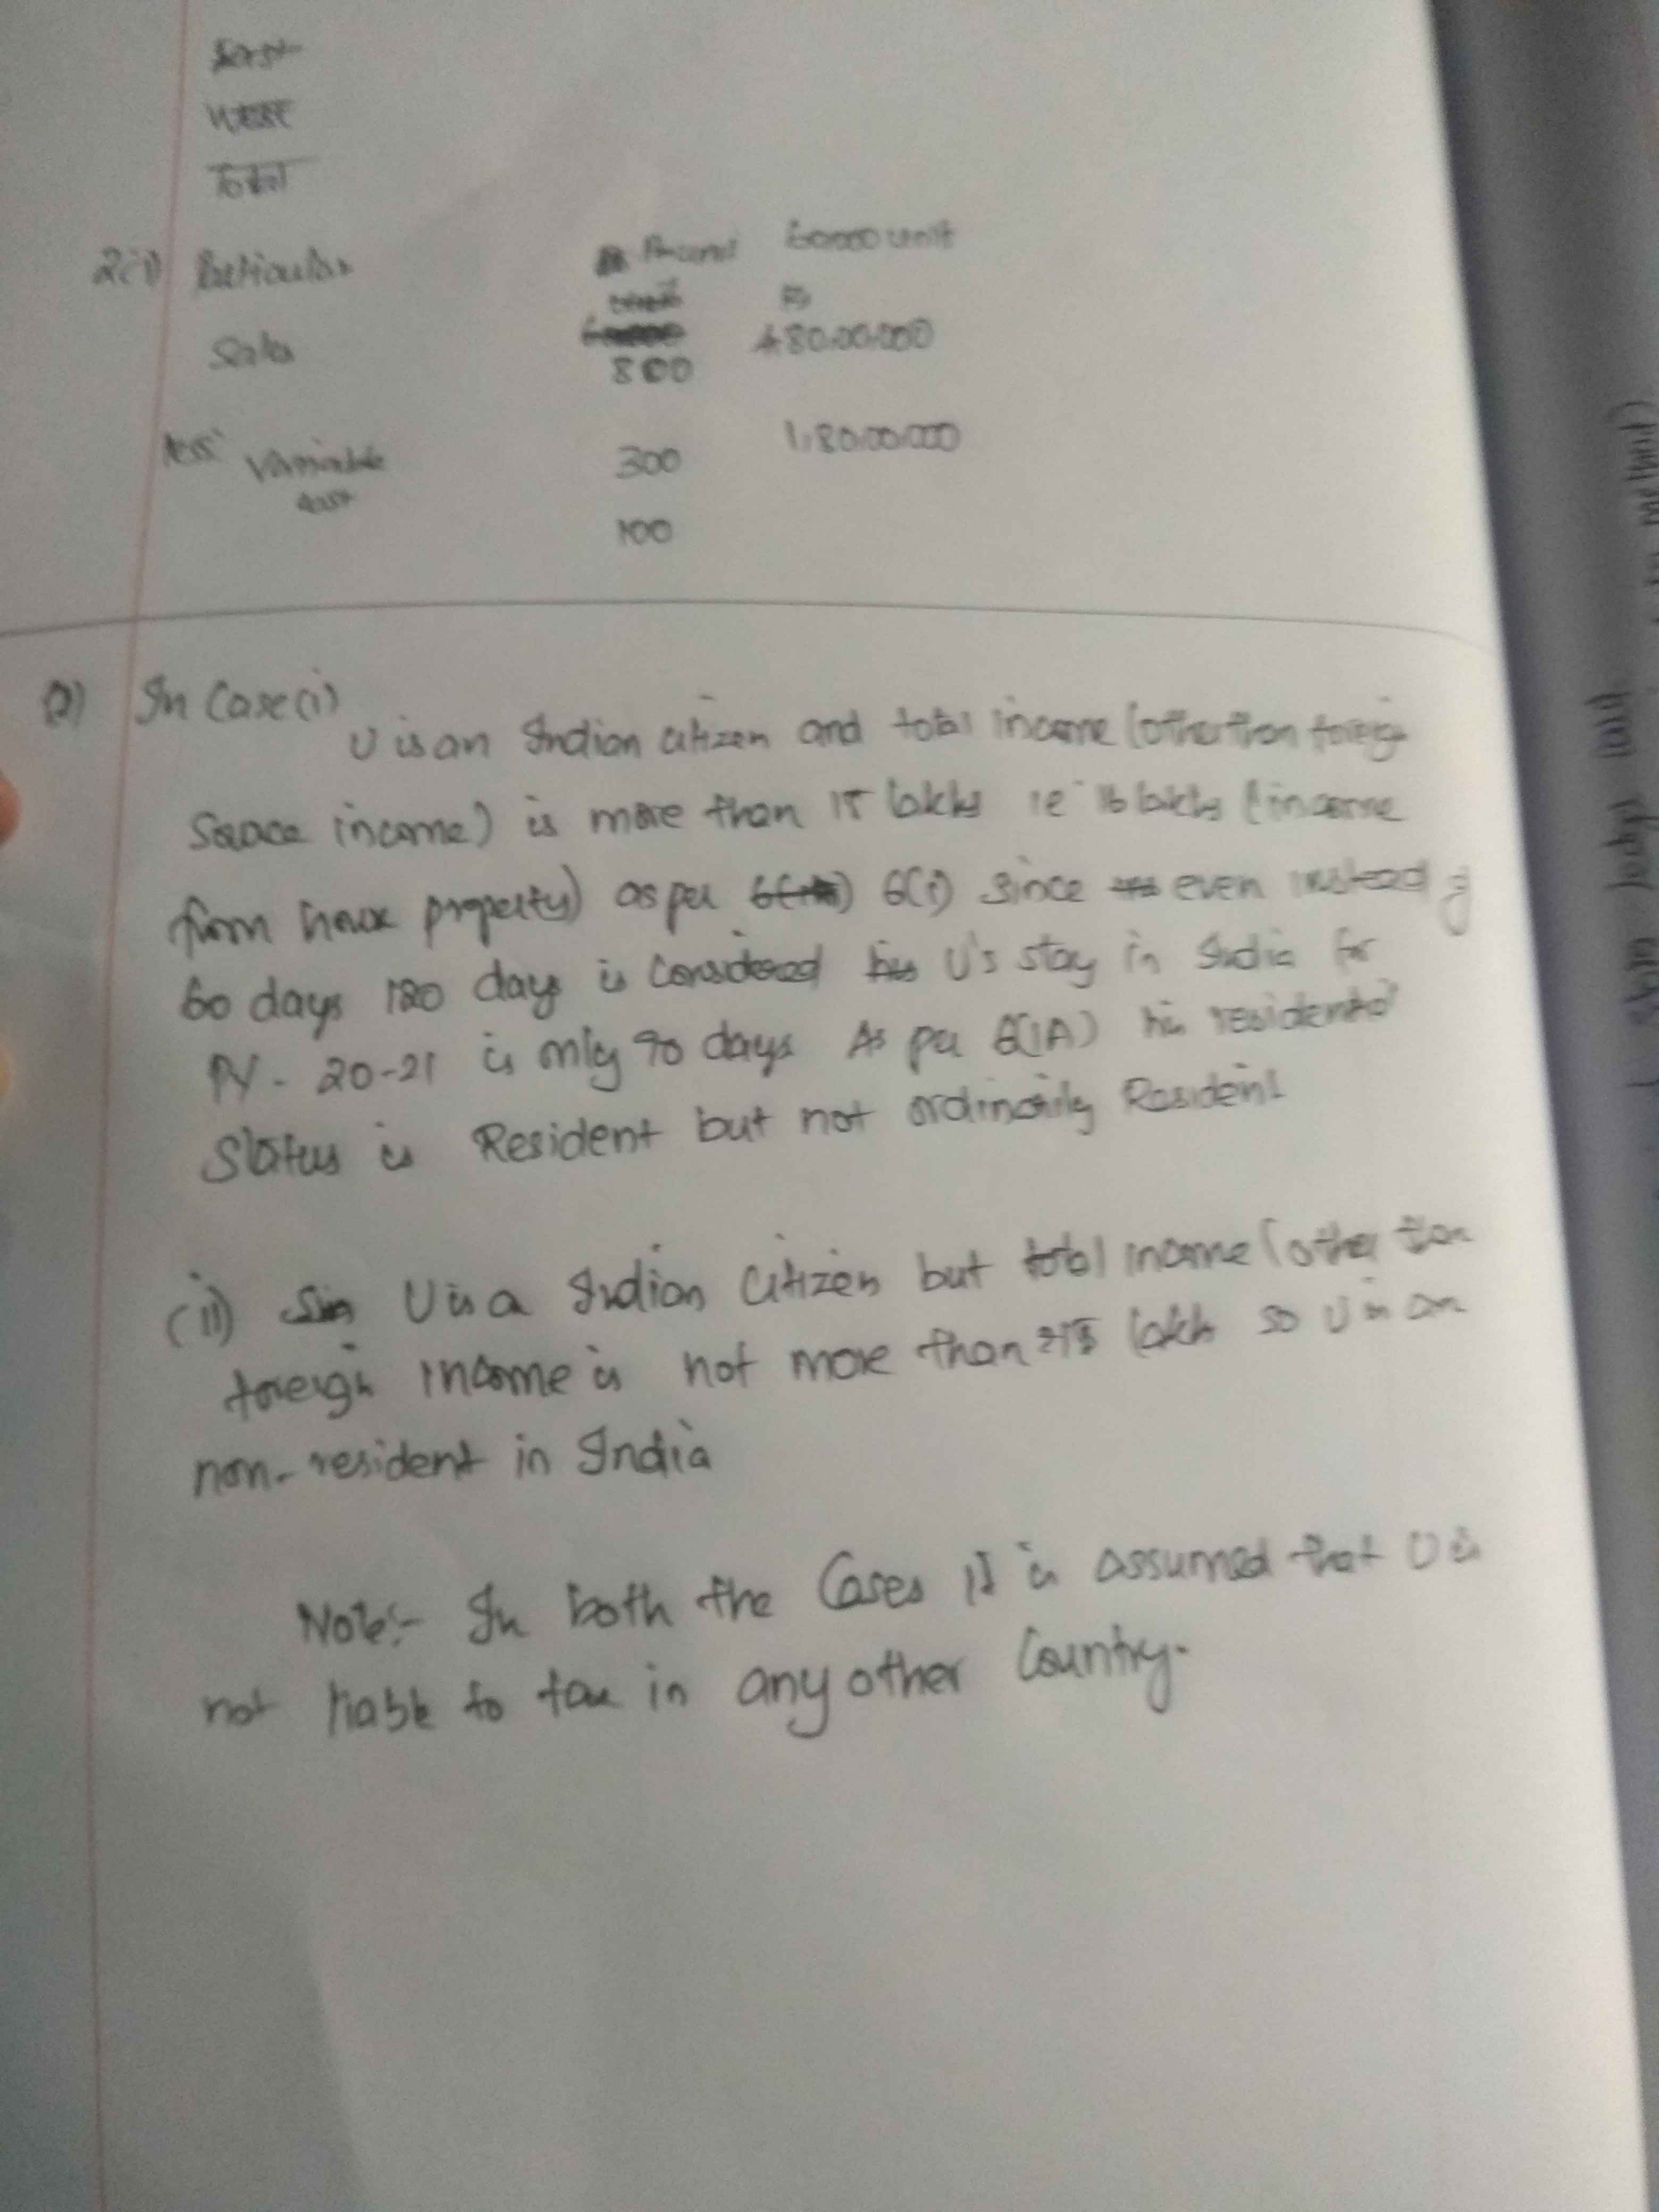 Total
2(i) Particular 60000 unit
Rs
Sales 800 480,00,000
less: Variable cost 300 1,80,00,000
100
a) In Case (i)
U is an Indian citizen and total income (other than foreign
Source income) is more than 15 lakhs ie 16 lakhs (income
from house property) as per 6(1) since even instead of
60 days 120 days is Considered U's stay in India for
PY - 20-21 is only 90 days As per 6(1A) his residential
Status is Resident but not ordinarily Resident
(ii) U is a Indian Citizen but total income (other than
foreign income is not more than 15 lakh so U is an
non-resident in India
Note:- In both the Cases it is assumed that U is
not liable to tax in any other Country.